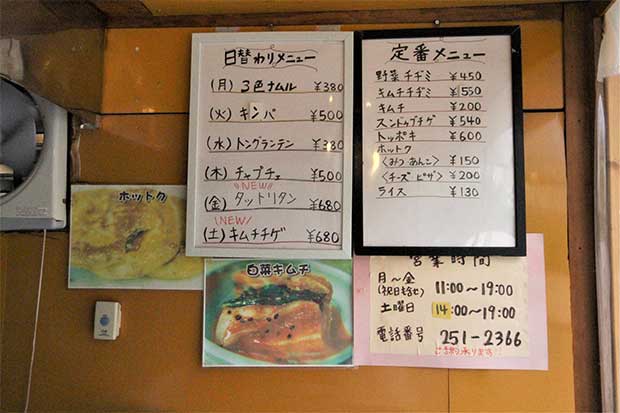 日替わりメニュー
(月) 3色ナムル ¥380
(火) キンパ ¥500
(水) トングランテン ¥380
(木) チャプチェ ¥500
NEW
(金) タットリタン ¥680
NEW
(土) キムチチゲ ¥680
定番メニュー
野菜チヂミ ¥450
キムチチヂミ ¥550
キムチ ¥200
スンドゥブチゲ ¥540
トッポキ ¥600
ホットク
〈みつ あんこ〉 ¥150
〈チーズ ピザ〉 ¥200
ライス ¥130
ホットク
白菜キムチ
営業時間
月〜金 11:00〜19:00
(祝日も含む)
土曜日 14:00〜19:00
電話番号 251-2366